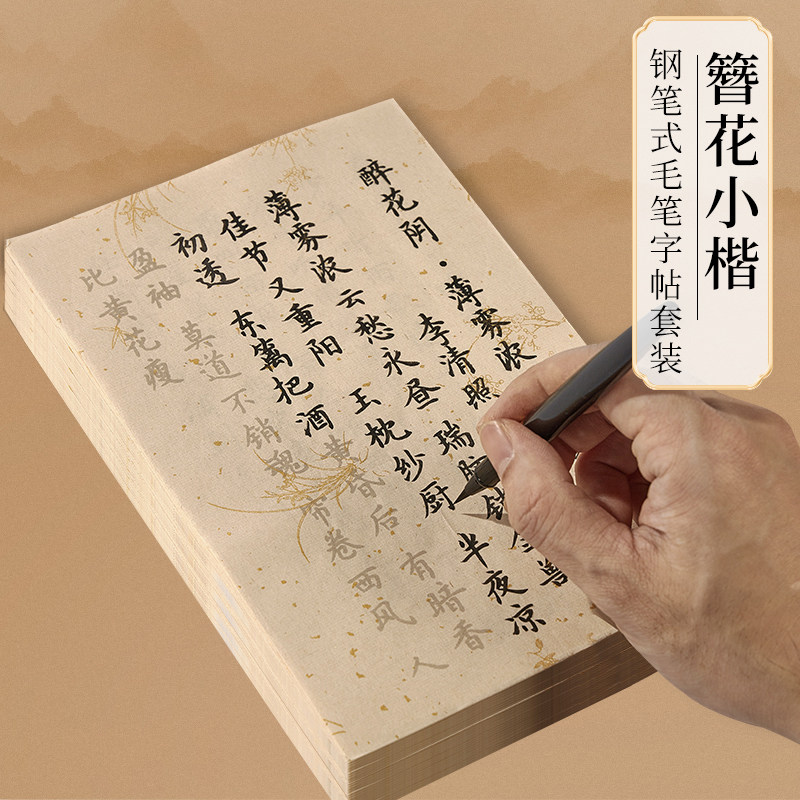 簪花小楷
钢笔式毛笔字帖套装
醉花阴·薄雾浓
李清照
薄雾浓云愁永昼 瑞脑销金兽
佳节又重阳 玉枕纱厨 半夜凉
初透 东篱把酒黄昏后 有暗香
盈袖 莫道不销魂 帘卷西风 人
比黄花瘦